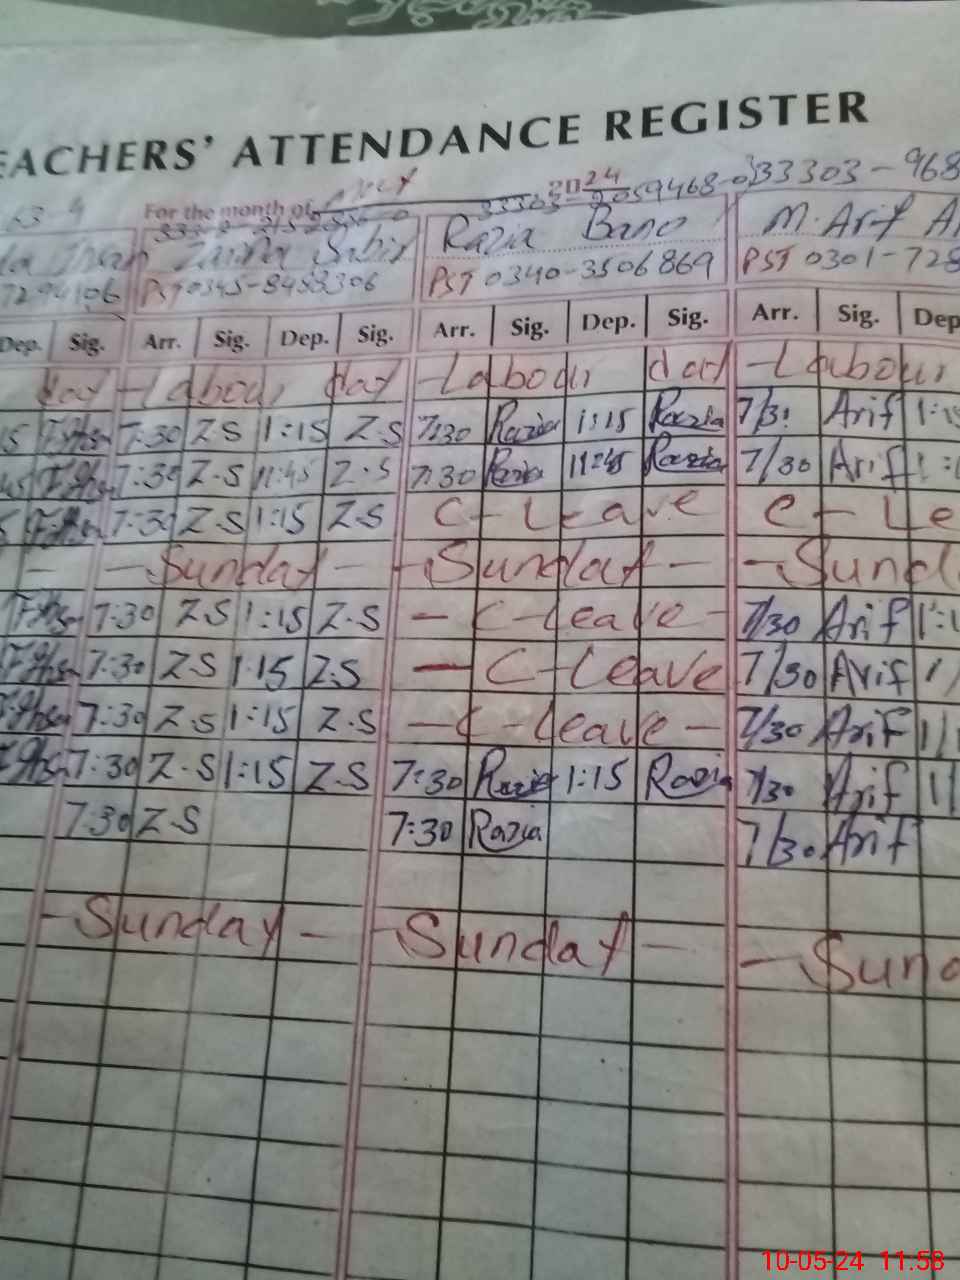 EACHERS' ATTENDANCE REGISTER
For the month of 2024
33303-2059468-0 33303-968
Sabir Razia Bano M. Arif A
7294106 PST 0345-8458306 PST 0340-3506869 PST 0301-728
Dep. Sig. Arr. Sig. Dep. Sig. Arr. Sig. Dep. Sig. Arr. Sig. Dep
day - Labour day - Labour day - Labour
15 7:30 Z S 1:15 Z S 7:30 Razia 1:15 Razia 7/3: Arif 1:15
45 7:30 Z.S 11:45 Z.S 7:30 Razia 11:45 Razia 7/30 Arif
5 7:30 Z.S 1:15 Z.S C-Leave C-Le
- - Sunday - - Sunday - - Sund
7:30 Z S 1:15 Z.S - C-leave - 7/30 Arif 1:1
7:30 Z.S 1:15 Z.S - C-Leave 7/30 Arif 1/
7:30 Z.S 1:15 Z.S - C-leave - 7/30 Arif 1/1
7:30 Z.S 1:15 Z.S 7:30 Razia 1:15 Razia 7/30 Arif 1/
7:30 Z.S 7:30 Razia 7/30 Arif
- Sunday - - Sunday - - Sund
10-05-24 11.58